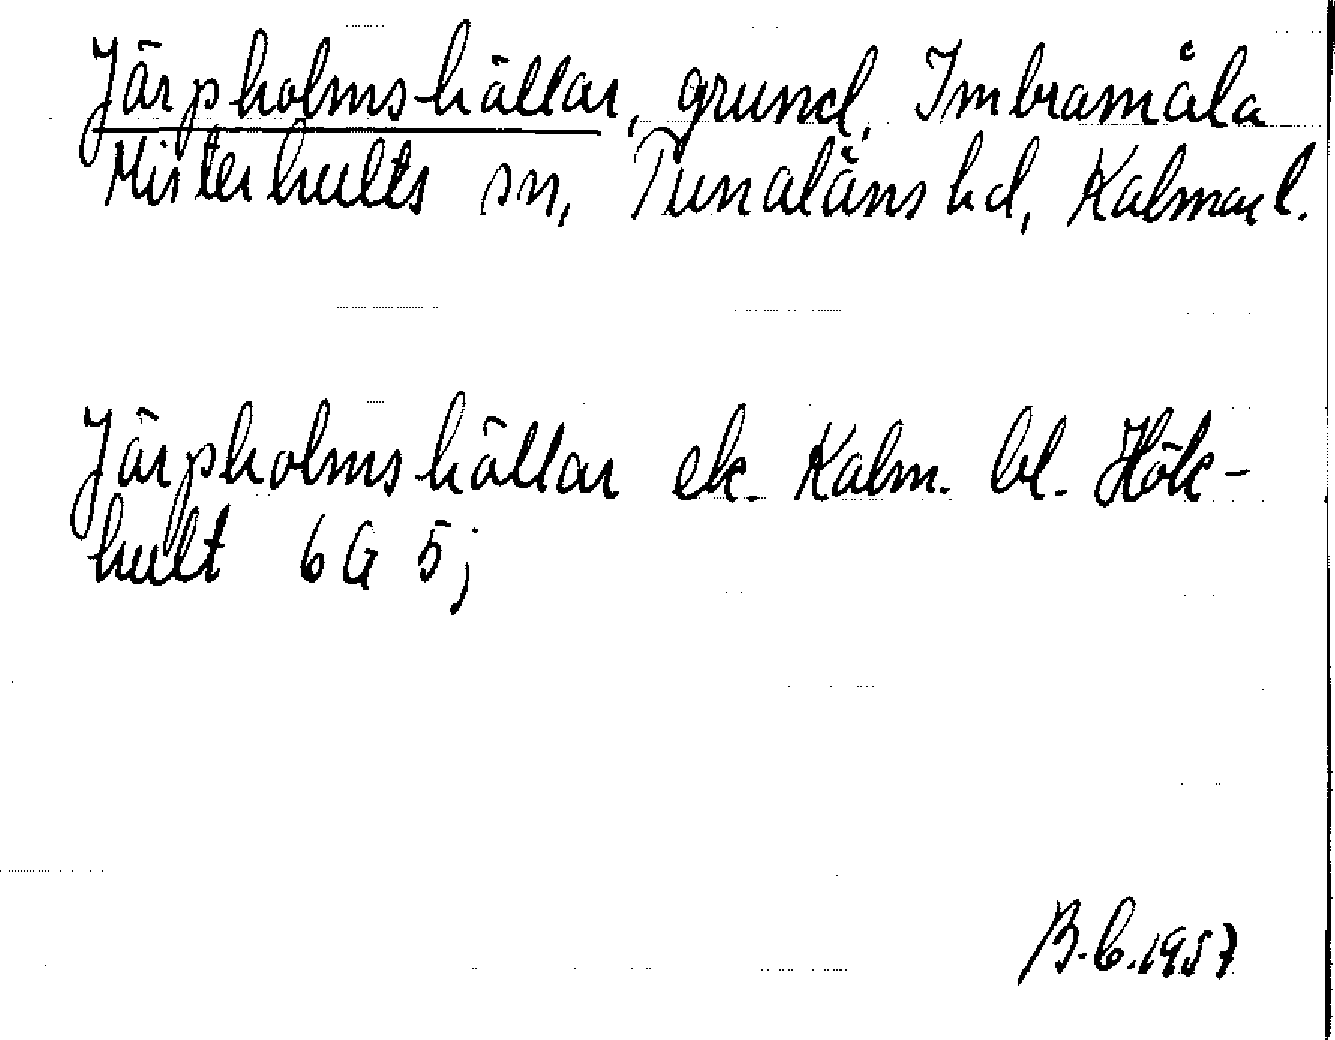 Järpholmshällar, grund, Imbramåla
Misterhults sn, Tunaläns hd, Kalmar l.
Järpholmshällar ek. Kalm. bl. Hök-
hult 6 G 5;
B.C.1957